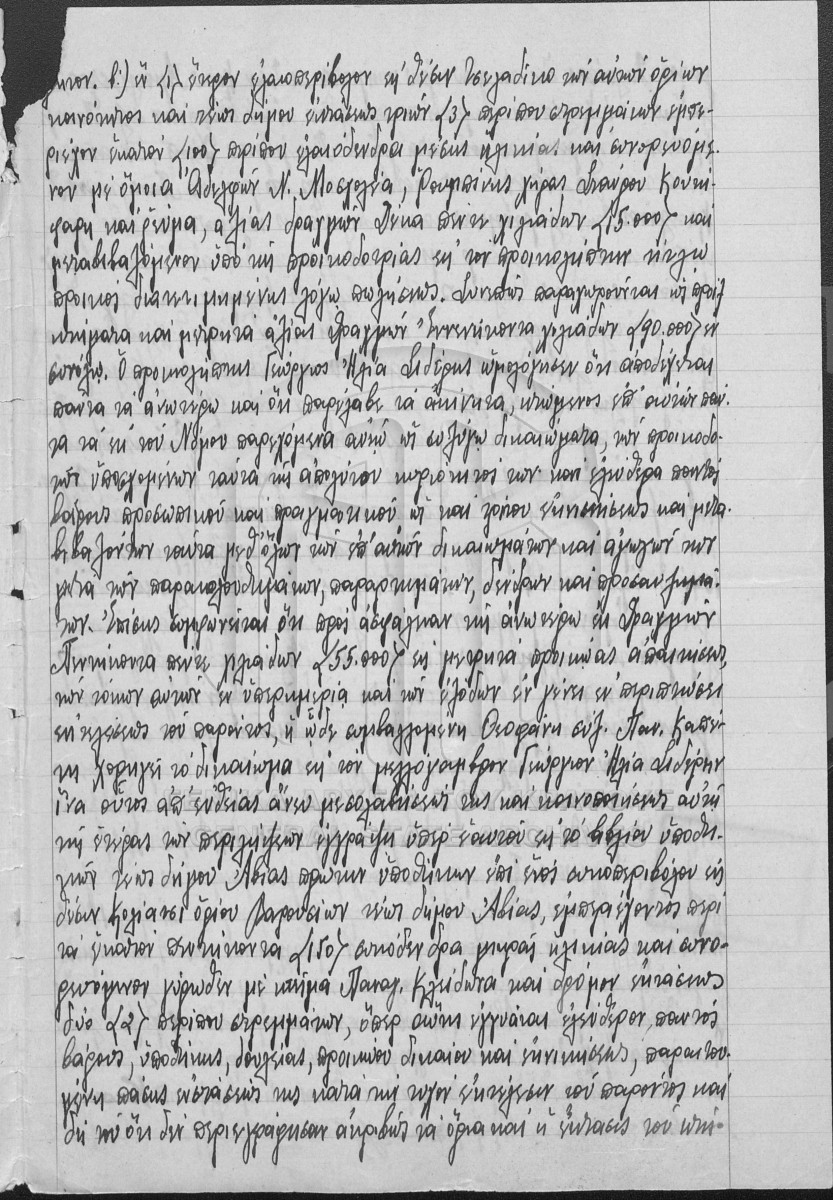 β) ἓν (1) ἕτερον ἐλαιοπερίβολον εἰς θέσιν τῶν αὐτῶν ὁρίων
κοινότητος καὶ τέως δήμου ἐκτάσεως τριῶν (3) περίπου στρεμμάτων ἐμπε-
ριέχον ἑκατὸν (100) περίπου ἐλαιόδενδρα μέσης ἡλικίας καὶ συνορευόμε-
νον μὲ ὅμοια Ἀδελφῶν Ν. χήρας Σταύρου Κουτη-
φαρη καὶ ρεῦμα, ἀξίας δραχμῶν Δέκα πέντε χιλιάδων (15.000) καὶ
μεταβιβαζόμενον ὑπὸ τῆς προικοδοτρίας εἰς τὸν προικολήπτην
προικὸς διατετιμημένης λόγῳ πωλήσεως. Συνεπῶς παραχωροῦνται ὡς προὶξ
κτήματα καὶ μετρητὰ ἀξίας Δραχμῶν Ἐννενήκοντα χιλιάδων (90.000) ἐν
συνόλῳ. Ὁ προικολήπτης Γεώργιος Ἠλία Σιδέρης ὡμολόγησεν ὅτι ἀποδέχεται
πάντα τὰ ἀνωτέρω καὶ ὅτι παρέλαβε τὰ ἀκίνητα, κτώμενος ἐπ' αὐτῶν πάν-
τα τὰ ἐκ τοῦ Νόμου παρεχόμενα αὐτῷ ὡς συζύγῳ δικαιώματα, τῶν προικοδο-
τῶν ὑποσχομένων ταῦτα τῆς ἀπολύτου κυριότητός των καὶ ἐλεύθερα παντὸς
βάρους προσωπικοῦ καὶ πραγματικοῦ ὡς καὶ τόπου ἐκνικήσεως καὶ μετα-
βιβαζόντων ταῦτα μεθ' ὅλων τῶν ἐπ' αὐτῶν δικαιωμάτων καὶ ἀγωγῶν των
μετὰ τῶν παρακολουθημάτων, παραρτημάτων, δένδρων καὶ προσαυξημά-
των. Ἐπίσης συμφωνεῖται ὅτι πρὸς ἀσφάλειαν τῆς ἀνωτέρω ἐκ Δραχμῶν
Πεντήκοντα πέντε χιλιάδων (55.000) εἰς μετρητὰ προικώας ἀπαιτήσεως,
τῶν τόκων αὐτῶν ἐν ὑπερημερίᾳ καὶ τῶν ἐξόδων ἐν γένει ἐν περιπτώσει
ἐκτελέσεως τοῦ παρόντος, ἡ ὧδε συμβαλλομένη Θεοφάνη σύζ. Παν. Καπέ-
τη χορηγεῖ τὸ δικαίωμα εἰς τὸν μελλόγαμβρον Γεώργιον Ἠλία Σιδέρην
ἵνα οὗτος ἀπ' εὐθείας ἄνευ μεσολαβήσεώς της καὶ κοινοποιήσεως αὐτῇ
τῆς ἑτέρας τῶν περιλήψεων ἐγγράψῃ ὑπὲρ ἑαυτοῦ εἰς τὸ βιβλίον ὑποθη-
κῶν τέως δήμου Ἀβίας πρώτην ὑποθήκην ἐπὶ ἑνὸς συκοπεριβόλου εἰς
θέσιν ὁρίου Βαρουσίων τέως δήμου Ἀβίας, ἐμπεριέχοντος περὶ
τὰ ἑκατὸν πεντήκοντα (150) συκόδενδρα μικρᾶς ἡλικίας καὶ συνο-
ρευόμενον γύρωθεν μὲ κτῆμα Παναγ. Κλείδωνα καὶ δρόμον ἐκτάσεως
δύο (2) περίπου στρεμμάτων, ὅπερ αὕτη ἐγγυᾶται ἐλεύθερον παντὸς
βάρους, ὑποθήκης, δουλείας, προικώου δικαίου καὶ ἐκνικήσεως, παραιτου-
μένη πάσης ἐνστάσεώς της κατὰ τὴν τυχὸν ἐκτέλεσιν τοῦ παρόντος καὶ
διὰ τοῦ ὅτι δὲν περιεγράφησαν ἀκριβῶς τὰ ὅρια καὶ ἡ ἔκτασις τοῦ κτή-